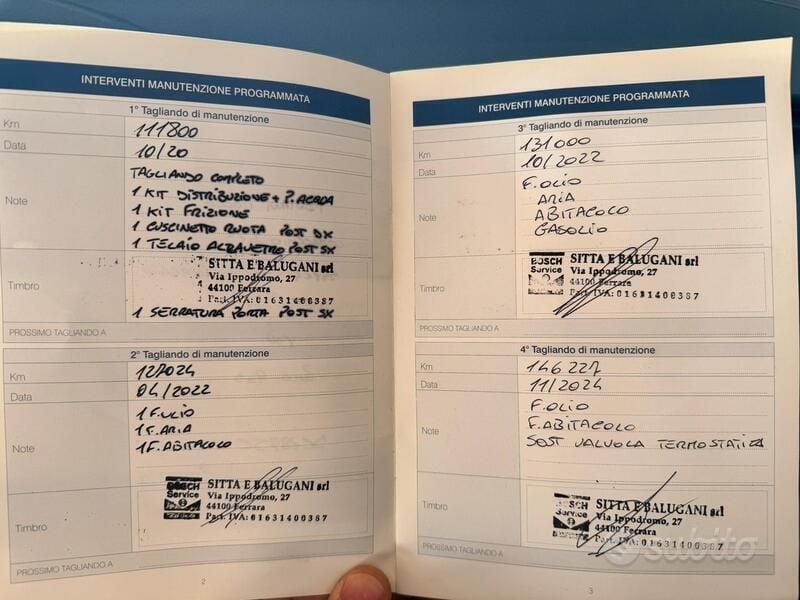 INTERVENTI MANUTENZIONE PROGRAMMATA
1° Tagliando di manutenzione
Km 111800
Data 10/20
Note
TAGLIANDO COMPLETO
1 KIT DISTRIBUZIONE + P. ACQUA
1 KIT FRIZIONE
1 CUSCINETTO RUOTA POST DX
1 TELAIO ALZAVETRO POST SX
Timbro
SITTA E BALUGANI srl
Via Ippodromo, 27
44100 Ferrara
Part. IVA: 01631400387
1 SERRATURA PORTA POST SX
PROSSIMO TAGLIANDO A
2° Tagliando di manutenzione
Km 127024
Data 04/2022
Note
1 F. OLIO
1 F. ARIA
1 F. ABITACOLO
Timbro
BOSCH
Service
SITTA E BALUGANI srl
Via Ippodromo, 27
44100 Ferrara
Part. IVA: 01631400387
PROSSIMO TAGLIANDO A
2
INTERVENTI MANUTENZIONE PROGRAMMATA
3° Tagliando di manutenzione
Km 131000
Data 10/2022
Note
F. OLIO
ARIA
ABITACOLO
GASOLIO
Timbro
BOSCH
Service
SITTA E BALUGANI srl
Via Ippodromo, 27
44100 Ferrara
Part. IVA: 01631400387
PROSSIMO TAGLIANDO A
4° Tagliando di manutenzione
Km 146227
Data 11/2024
Note
F. OLIO
F. ABITACOLO
SOST VALVOLA TERMOSTATICA
Timbro
BOSCH
Service
SITTA E BALUGANI srl
Via Ippodromo, 27
44100 Ferrara
Part. IVA: 01631400387
PROSSIMO TAGLIANDO A
3
subito